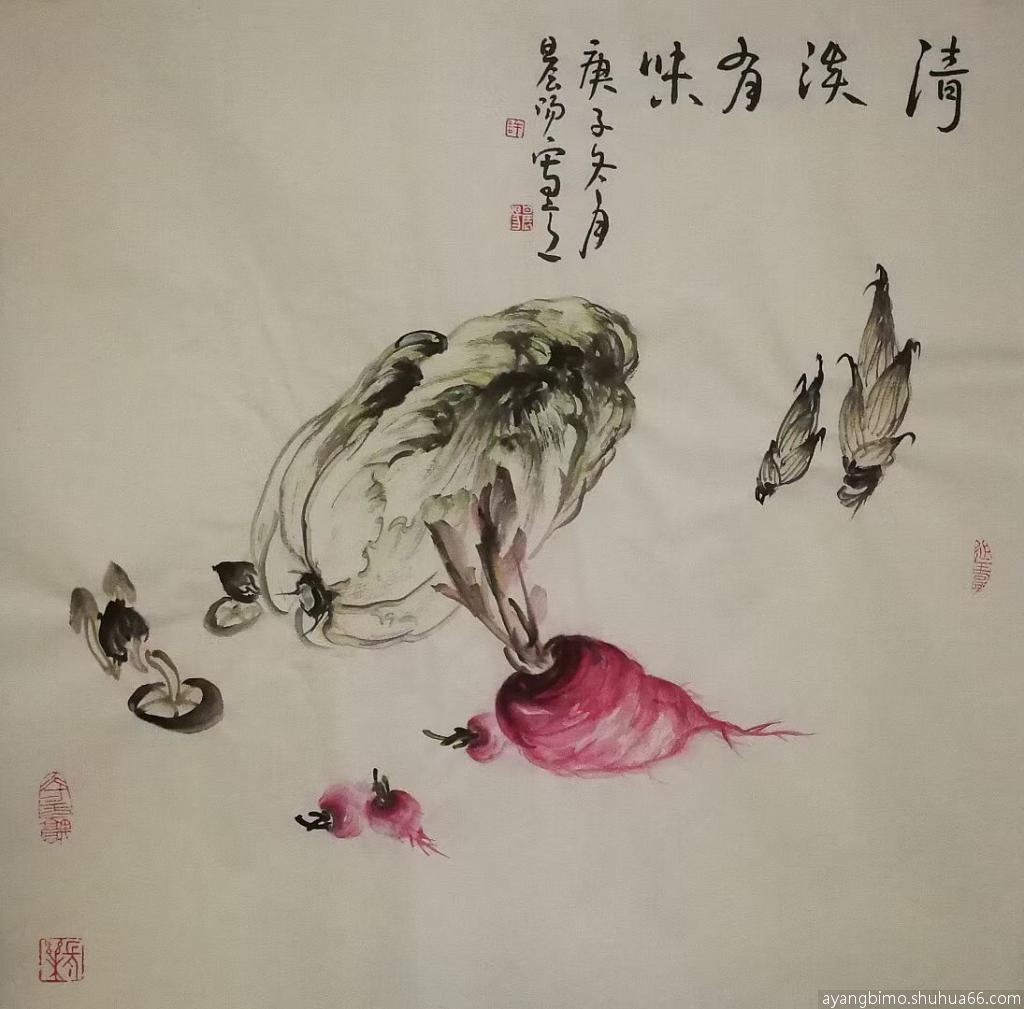 清淡有味
庚子冬月
晨阳写之
许
延寿
ayangbimo.shuhua66.com